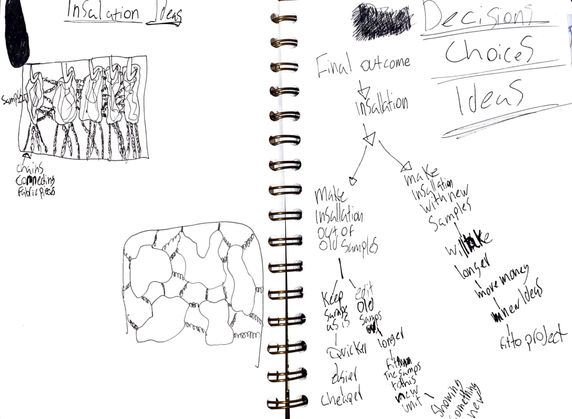 Insalation Ideas
Samples
chains
connecting
fabric pieces
Decisions
Choices
Ideas
Final outcome
Insallation
make
insallation
out of
old samples
make
insallation
with new
samples
Keep
samps
as is
Quicker
easier
cheaper
edit
old
samps
longer
the samps
to this
new
unit
will take
longer
more money
new Ideas
fit to project
showing
something
new